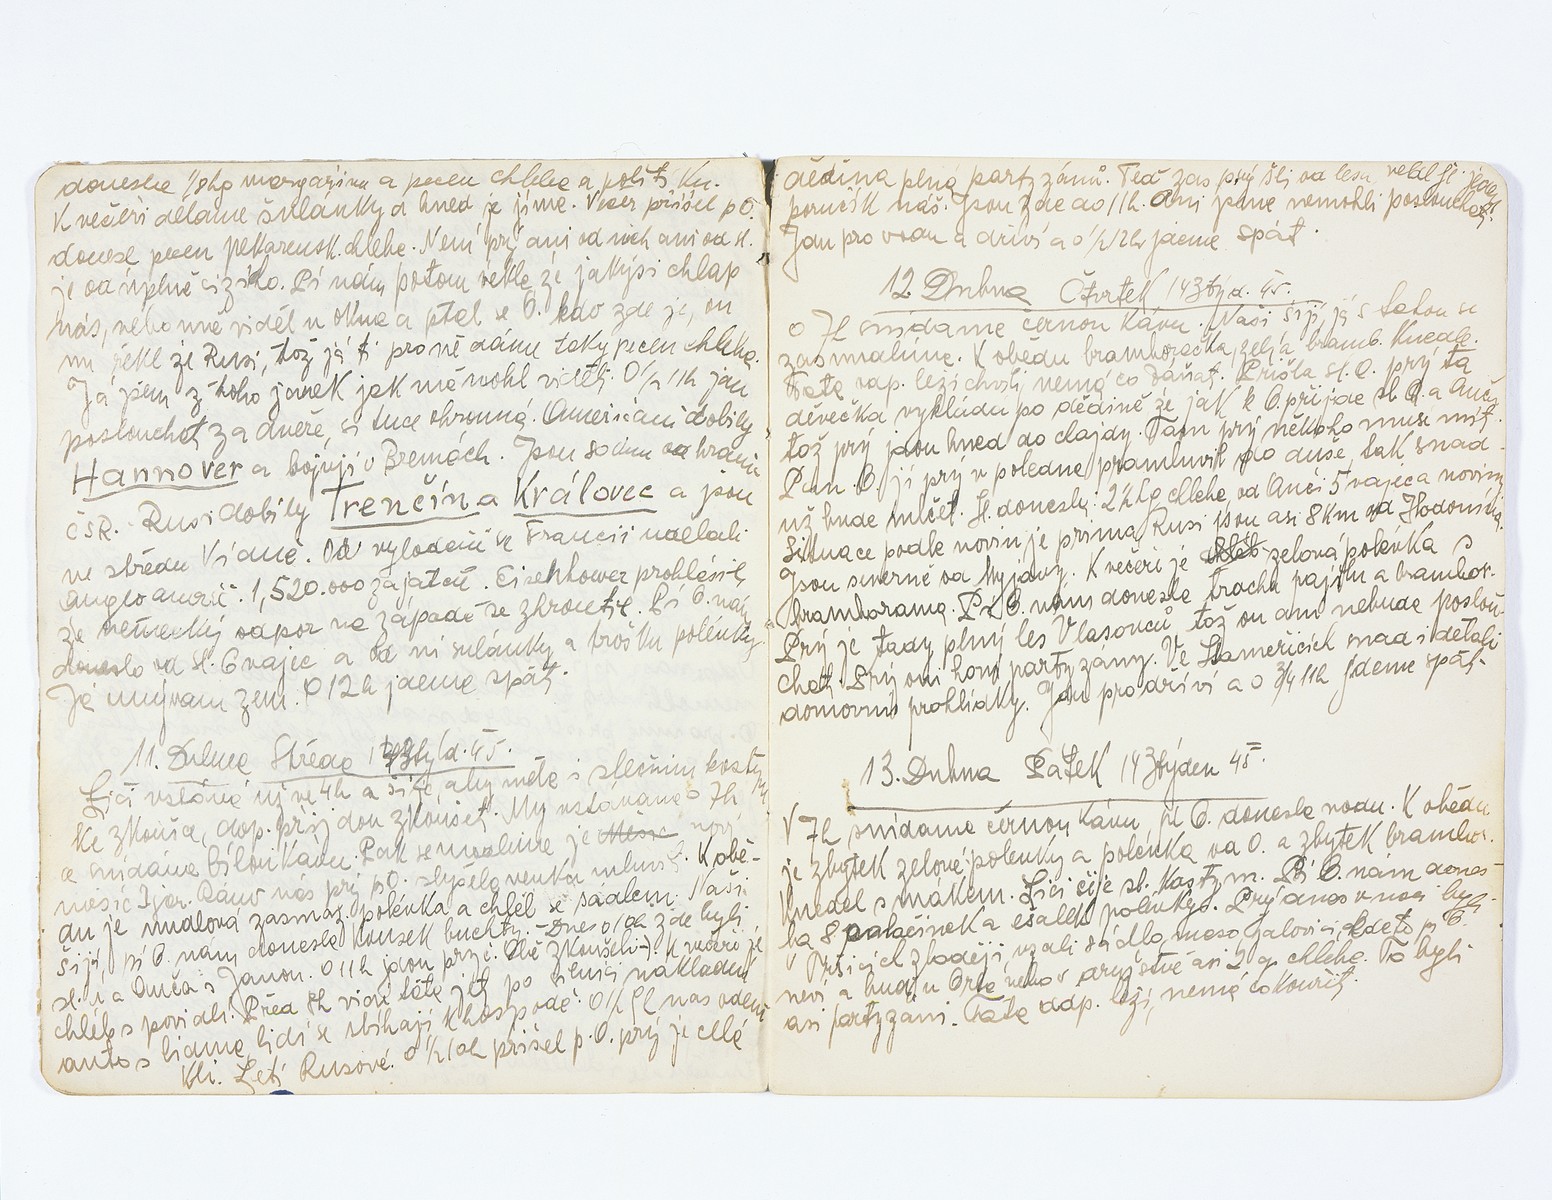 donesla 1/8kg margarinu a pecen chleba a
K večeři děláme šulánky a hned je jíme. Večer přišel p O.
donesl pecen pekarensk. chleba. Není prý ani od nich ani od sl.
je od úplně cizího. Pí nám potom řekla že jakýsi chlap
nás, nebo mě viděl u okna a ptal se O. kdo zde je, on
mu řekl že Rusi, tož já ti pro ně dám taky pecen chleba.
Já jsem z toho janek jak mě mohl viděti. O 1/2 11h jdu
poslouchat za dveře, si tuze ohromná. Američani dobily
Hannover a bojují v Bremách. Jsou 80km od hranic
ČSR. Rusi dobily Trenčín a Královec a jsou
ve středu Vídně. Od vylodění ve Francii nadělali
angloamerič. 1,520.000 zajatců. Eisenhower prohlásil,
že německý odpor na západě se zhroutil. Pí O. nám
donesla od sl. 6 vajec a od ní šulánky a trošku polévky
Já umývám zem. O 12h jdeme spát.
11. Dubna Středa 143týd. 45.
Lici vstává už ve 4h a šije, aby měla i slečnin kostym
ke zkoušce, dop. prý jdou zkoušet. My vstáváme o 7h
a snídáme bílou kávu. Pak se modlíme je nový
měsíc Ijar. Ráno nás prý pO. slyšel venku mluvit. K obě-
du je nudlová zasmaž. polévka a chléb se sádlem. Naši
šijí, pí O. nám donesla kousek buchty. Dnes o/10h zde byli
sl. a Anča s Janou. O 11h jdou pryč. Obě zkoušeli. K večeři je
chléb s povidli. Před 8h vidí táta jít po silnici nákladní
auto s lidma, lidi se sbíhají k hospodě. O 1/2 9h nás odem-
kli. Letí Rusové. O 1/2 10h přišel p. O. prý je celá
dědina plná partyzánů. Teď zas prý šli od lesa, velel jí jeden
poručík náš. Jsou zde do 11h. Ani jsme nemohli poslouchat.
Jdu pro vodu a dříví a o 1/2 12h jdeme spát.
12 Dubna Čtvrtek 143týd. 45.
o 7h snídáme černou kávu. Naši šijí, já s tatou se
zas modlíme. K obědu bramboračka, zelí a bramb. knedle.
Tata nap. leží chvíli, nemá co Přišla sl. O. prý ta
děvečka vykládá po dědině že jak k O. přijde sl. O. a Anča
tož prý jdou hned do clajdy. Tam prý někoho musí mít.
Pan O. jí prý v poledne promluvil do duše, tak snad
už bude mlčet. Sl. donesla 2 1/2kg chleba od Anči 5 vajec a noviny
Situace podle novin je prima, Rusi jsou asi 8km od Hodonína.
Jsou severně od Myjavy. K večeři je zelová polévka s
bramborama. Pí O. nám donesla trochu rajsku a brambor.
Prý je tady plný les Vlasovců tož on ani nebude poslou-
chat. Prý oni honí partyzány. Ve Stamericích snad i dělali
domovní prohlídky. Jdu pro dříví a o 3/4 11h jdeme spát.
13. Dubna Pátek 143týden 45.
V 7h snídáme černou kávu, pí O. donesla vodu. K obědu
je zbytek zelové polévky a polévka od O. a zbytek brambor.
knedel s mákem. Lici šije sl. kostym. Pí O. nám dones-
la 8 palačinek a ešálek polévky. Prý dnes v noci byli
v Pršticích zloději, vzali sádlo, maso, jalovici, kdeto p O.
neví a budí u Orla nebo v družstvě asi 2 q chleba. To byli
asi partyzáni. Tata odp. leží, nemá co kouřit.